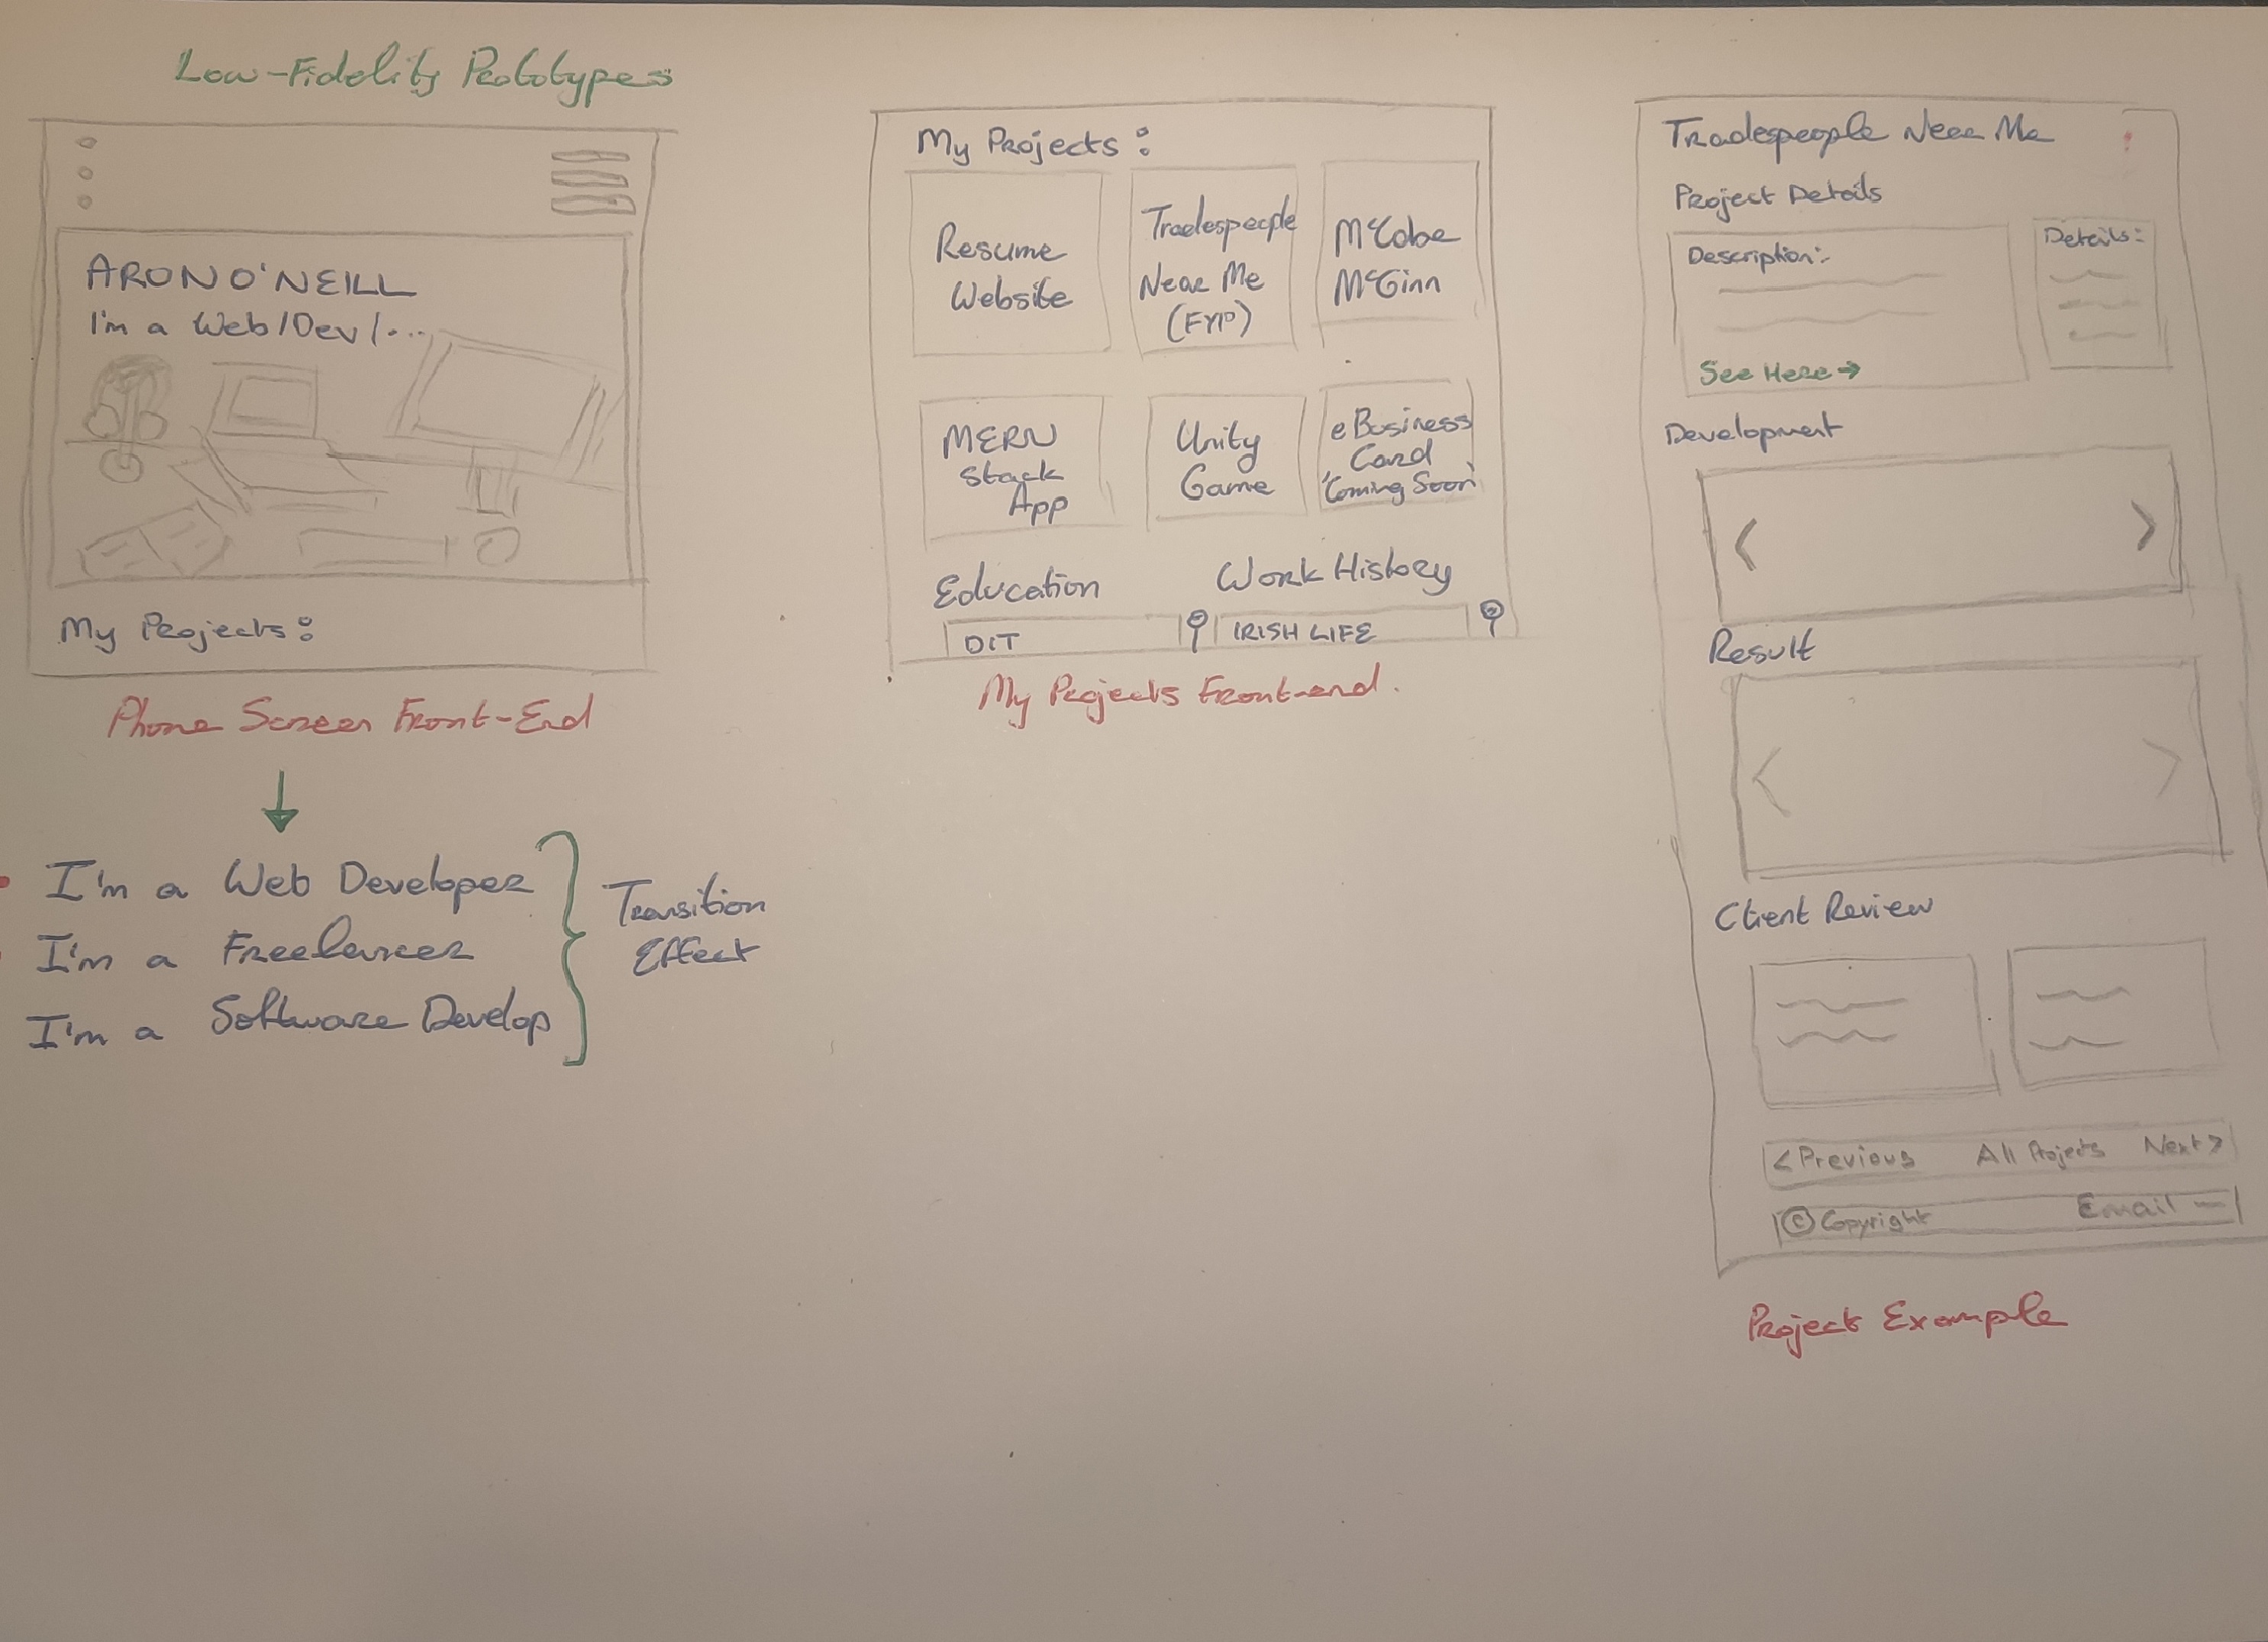 Low-Fidelity Prototypes
ARON O'NEILL
I'm a Web/Dev/...
My Projects:
Phone Screen Front-End
I'm a Web Developer
I'm a Freelancer
I'm a Software Develop
Transition
Effect
My Projects:
Resume
Website
Tradespeople
Near Me
(FYP)
McCabe
McGinn
MERN
Stack
App
Unity
Game
eBusiness
Card
'Coming Soon'
Education
Work History
DIT
IRISH LIFE
My Projects Front-end.
Tradespeople Near Me
Project Details
Description:-
See Here →
Details:-
Development
<
>
Result
<
>
Client Review
< Previous
All Projects
Next >
© Copyright
Email —
Project Example